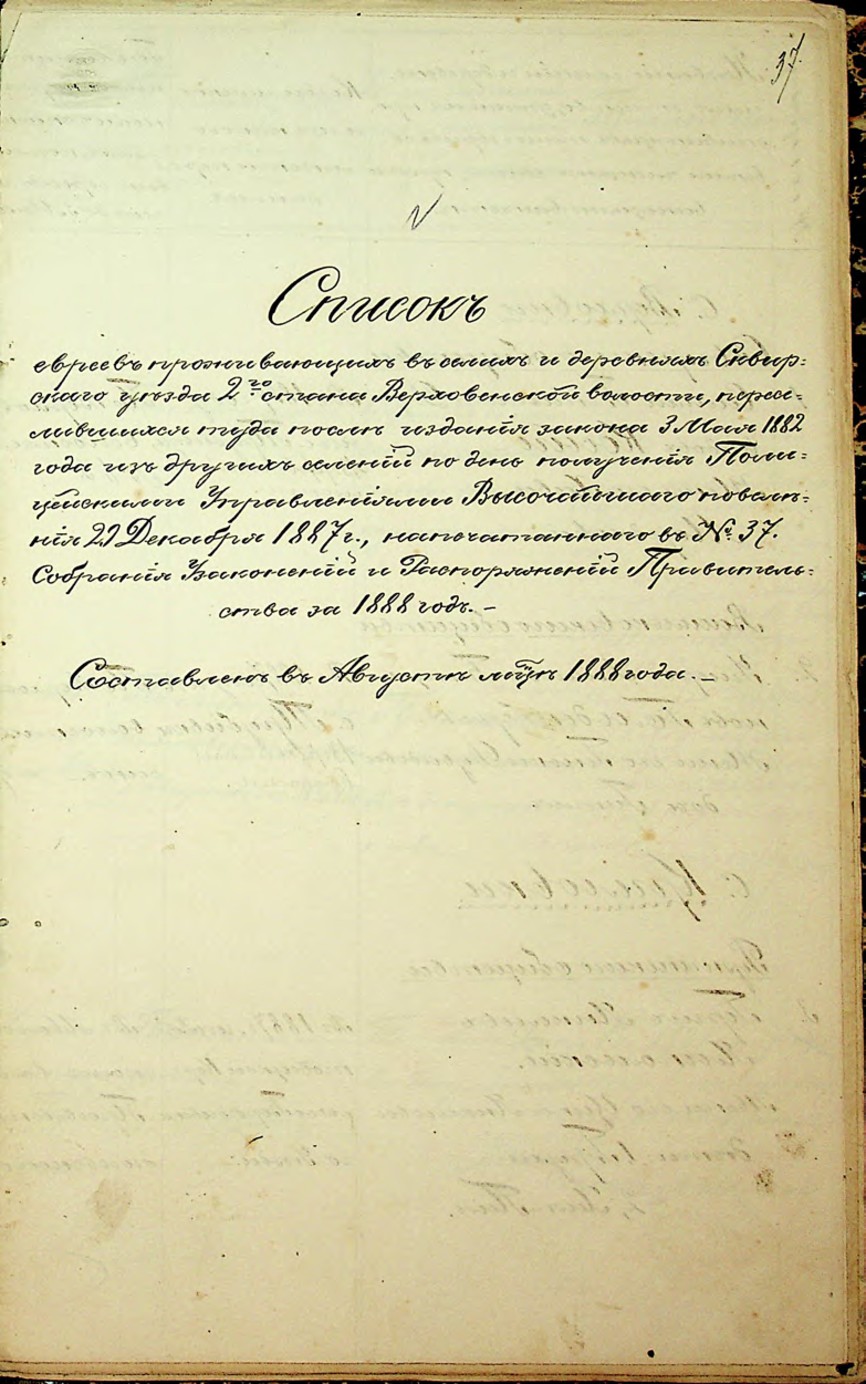 37.
Списокъ
евреевъ проживающихъ въ селахъ и деревняхъ Сквир=
скаго уѣзда 2го стана Верховенской волости, пересе=
лившихся туда послѣ изданія закона 3 Мая 1882
года изъ другихъ селеній по день полученія Поли=
цейскими Управленіями Высочайшаго повелѣ=
нія 29 Декабря 1887 г., напечатаннаго въ № 37.
Собранія Узаконеній и Распоряженій Правитель=
ства за 1888 годъ. –
Составленъ въ Августѣ м-цѣ 1888 года. –